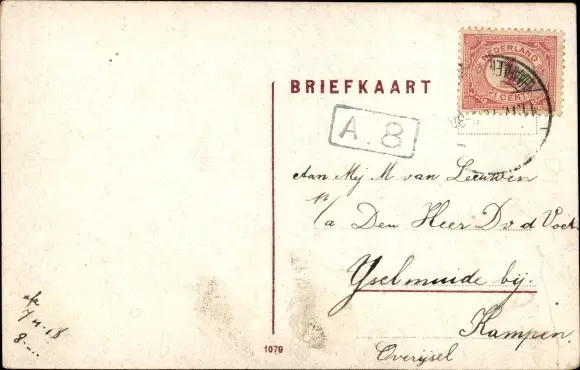 BRIEFKAART
NEDERLAND
1 CENT
A.8
Aan Mej M van Leeuwen
p/a Den Heer D v d Voet
Yselmuide bij
Kampen
Overijsel
8
1079